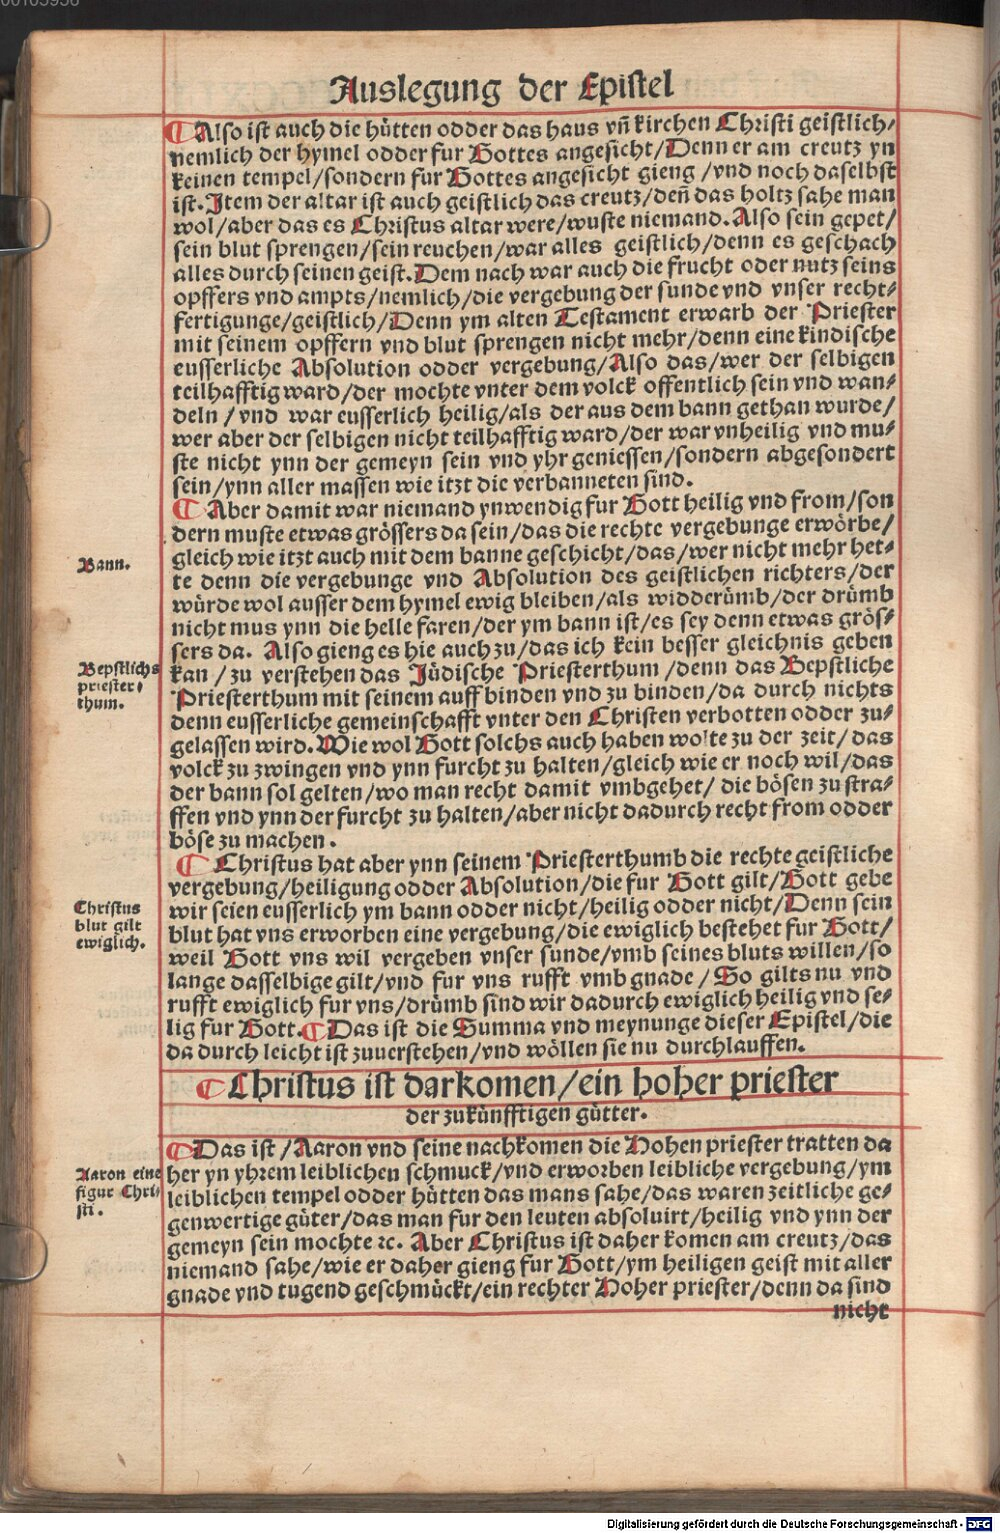 Auslegung der Epistel
¶ Also ist auch die hütten odder das haus vñ kirchen Christi geistlich/
nemlich der hymel odder fur Gottes angesicht/Denn er am creutz yn
keinen tempel/sondern fur Gottes angesicht gieng/vnd noch daselbst
ist. Item der altar ist auch geistlich das creutz/deñ das holtz sahe man
wol/aber das es Christus altar were/wuste niemand. Also sein gepet/
sein blut sprengen/sein reuchen/war alles geistlich/denn es geschach
alles durch seinen geist. Dem nach war auch die frucht oder nutz seins
opffers vnd ampts/nemlich/die vergebung der sunde vnd vnser recht-
fertigunge/geistlich/Denn ym alten Testament erwarb der Priester
mit seinem opffern vnd blut sprengen nicht mehr/denn eine kindische
eusserliche Absolution odder vergebung/Also das/wer der selbigen
teilhafftig ward/der mochte vnter dem volck offentlich sein vnd wan-
deln/vnd war eusserlich heilig/als der aus dem bann gethan wurde/
wer aber der selbigen nicht teilhafftig ward/der war vnheilig vnd mu-
ste nicht ynn der gemeyn sein vnd yhr geniessen/sondern abgesondert
sein/ynn aller massen wie itzt die verbanneten sind.
¶ Aber damit war niemand ynwendig fur Gott heilig vnd from/son
dern muste etwas grössers da sein/das die rechte vergebunge erwörbe/
Bann.
gleich wie itzt auch mit dem banne geschicht/das/wer nicht mehr het-
te denn die vergebunge vnd Absolution des geistlichen richters/der
würde wol ausser dem hymel ewig bleiben/als widderümb/der drümb
nicht mus ynn die helle faren/der ym bann ist/es sey denn etwas grös-
sers da. Also gieng es hie auch zu/das ich kein besser gleichnis geben
Bepstlichs
priester-
thum.
kan/zu verstehen das Jüdische Priesterthum/denn das Bepstliche
Priesterthum mit seinem auff binden vnd zu binden/da durch nichts
denn eusserliche gemeinschafft vnter den Christen verbotten odder zu-
gelassen wird. Wie wol Gott solchs auch haben wolte zu der zeit/das
volck zu zwingen vnd ynn furcht zu halten/gleich wie er noch wil/das
der bann sol gelten/wo man recht damit vmbgehet/die bösen zu stra-
ffen vnd ynn der furcht zu halten/aber nicht dadurch recht from odder
böse zu machen.
¶ Christus hat aber ynn seinem Priesterthumb die rechte geistliche
vergebung/heiligung odder Absolution/die fur Gott gilt/Gott gebe
Christus
blut gilt
ewiglich.
wir seien eusserlich ym bann odder nicht/heilig odder nicht/Denn sein
blut hat vns erworben eine vergebung/die ewiglich bestehet fur Gott/
weil Gott vns wil vergeben vnser sunde/vmb seines bluts willen/so
lange dasselbige gilt/vnd fur vns rufft vmb gnade/So gilts nu vnd
rufft ewiglich fur vns/drümb sind wir dadurch ewiglich heilig vnd se-
lig fur Gott. ¶ Das ist die Summa vnd meynunge dieser Epistel/die
da durch leicht ist zuuerstehen/vnd wöllen sie nu durchlauffen.
¶ Christus ist darkomen/ein hoher priester
der zukünfftigen gütter.
¶ Das ist/Aaron vnd seine nachkomen die Hohen priester tratten da
Aaron eine
figur Chri-
sti.
her yn yhrem leiblichen schmuck/vnd erworben leibliche vergebung/ym
leiblichen tempel odder hütten das mans sahe/das waren zeitliche ge-
genwertige güter/das man fur den leuten absoluirt/heilig vnd ynn der
gemeyn sein mochte ⁊c. Aber Christus ist daher komen am creutz/das
niemand sahe/wie er daher gieng fur Gott/ym heiligen geist mit aller
gnade vnd tugend geschmückt/ein rechter Hoher priester/denn da sind
nicht
Digitalisierung gefördert durch die Deutsche Forschungsgemeinschaft - DFG